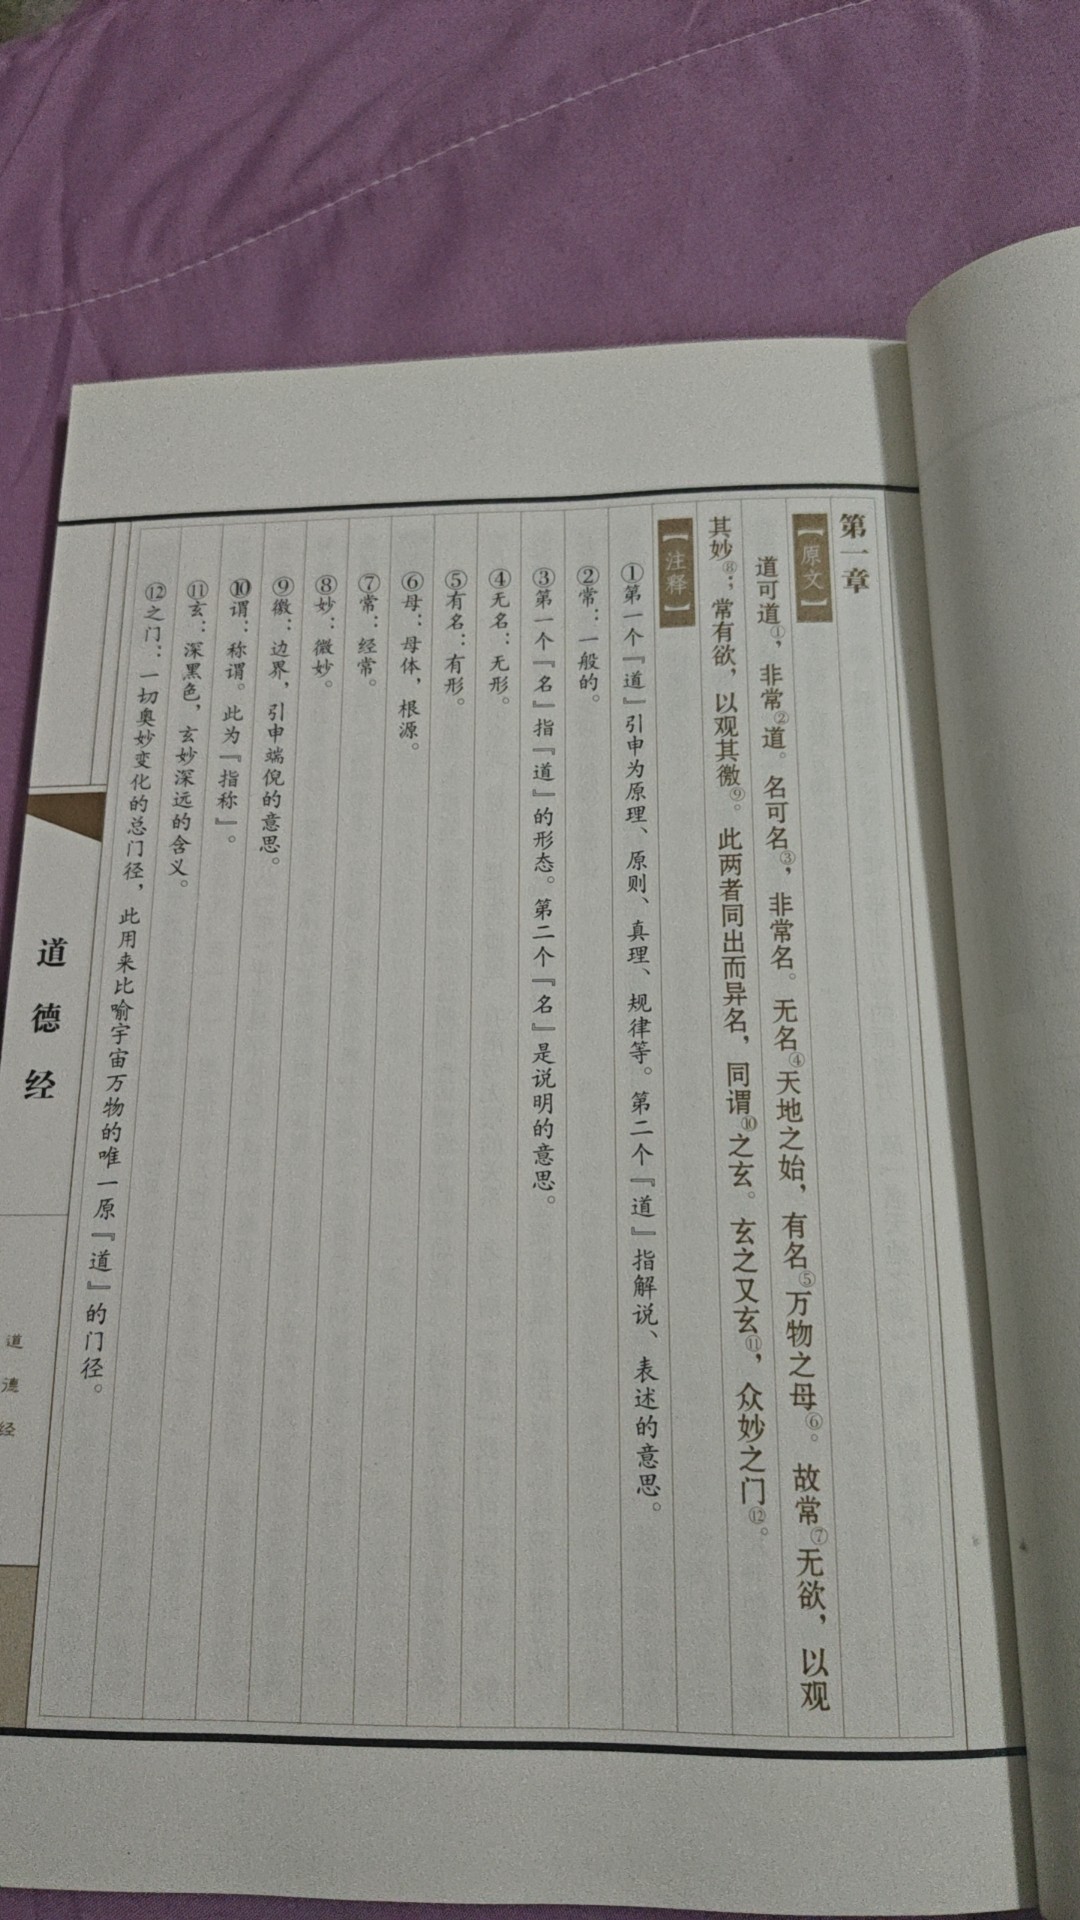 第一章
【原文】
道可道①，非常②道。名可名③，非常名。无名④天地之始，有名⑤万物之母⑥。故常⑦无欲，以观
其妙⑧；常有欲，以观其徼⑨。此两者同出而异名，同谓⑩之玄。玄之又玄⑪，众妙之门⑫。
【注释】
①第一个『道』引申为原理、原则、真理、规律等。第二个『道』指解说、表述的意思。
②常：一般的。
③第一个『名』指『道』的形态。第二个『名』是说明的意思。
④无名：无形。
⑤有名：有形。
⑥母：母体，根源。
⑦常：经常。
⑧妙：微妙。
⑨徼：边界，引申端倪的意思。
⑩谓：称谓。此为『指称』。
⑪玄：深黑色，玄妙深远的含义。
⑫之门：一切奥妙变化的总门径，此用来比喻宇宙万物的唯一原『道』的门径。
道德经
道德经